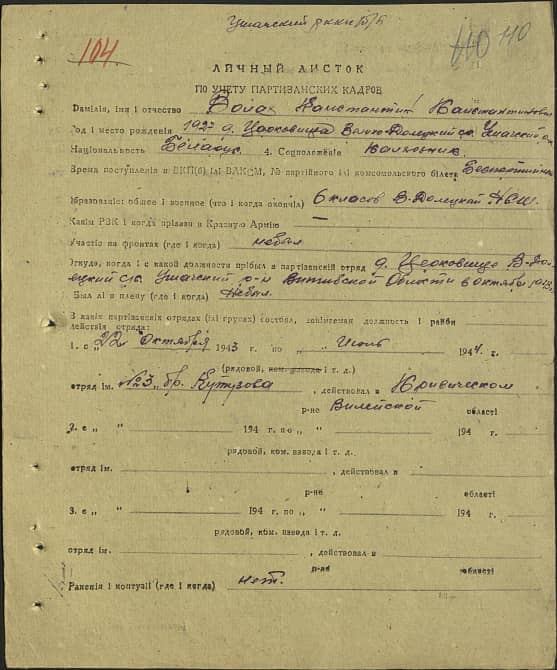 Ушачский РККП/Б
104. 110 110
ЛІЧНЫЙ ЛИСТОК
ПО УЧЕТУ ПАРТИЗАНСКИХ КАДРОВ
Фамілія, імя і отчество Войак Константин Константинович
Год і место рождения 192 д. Церковище Велико-Долецкий с/с Ушачский
Національность Беларус. 4. Соцположеніе Колхозник.
Время поступленія в ВКП(б) ілі ВЛКСМ, № партійного ілі комсомольского білета Беспартийный
Образованіе: общее і военное (что і когда окончіл) 6 класов В-Долецкай НСШ.
Какім РВК і когда прізван в Красную Армію —
Участіе на фронтах (где і когда) небыл
Откуда, когда і с какой должности прібыл в партізанскій отряд д. Церковище В-До-
лецкий с/с. Ушачский р-н Витебской Области в октябре 1943,
Был лі в плену (где і когда) Небыл.
В какіх партізанскіх отрядах (ілі групах) состоял, занімаемая должность і район
действія отряда:
1. с „22" Октября 1943 г. по „ " Июль 1944 г.
(рядовой, ком. взвода і т. д.)
отряд ім. №3, бр. Кутузова, действовал в Кривическом
р-не Вилейской області
2. с „ " 194 г. по „ " 194 г.
рядовой, ком. взвода і т. д.
отряд ім. , действовал в
р-не області
3. с „ " 194 г. по „ " 194 г.
рядовой, ком. взвода і т. д.
отряд ім. , действовал в
р-не області
Раненія і контузіі (где і когда) нет.